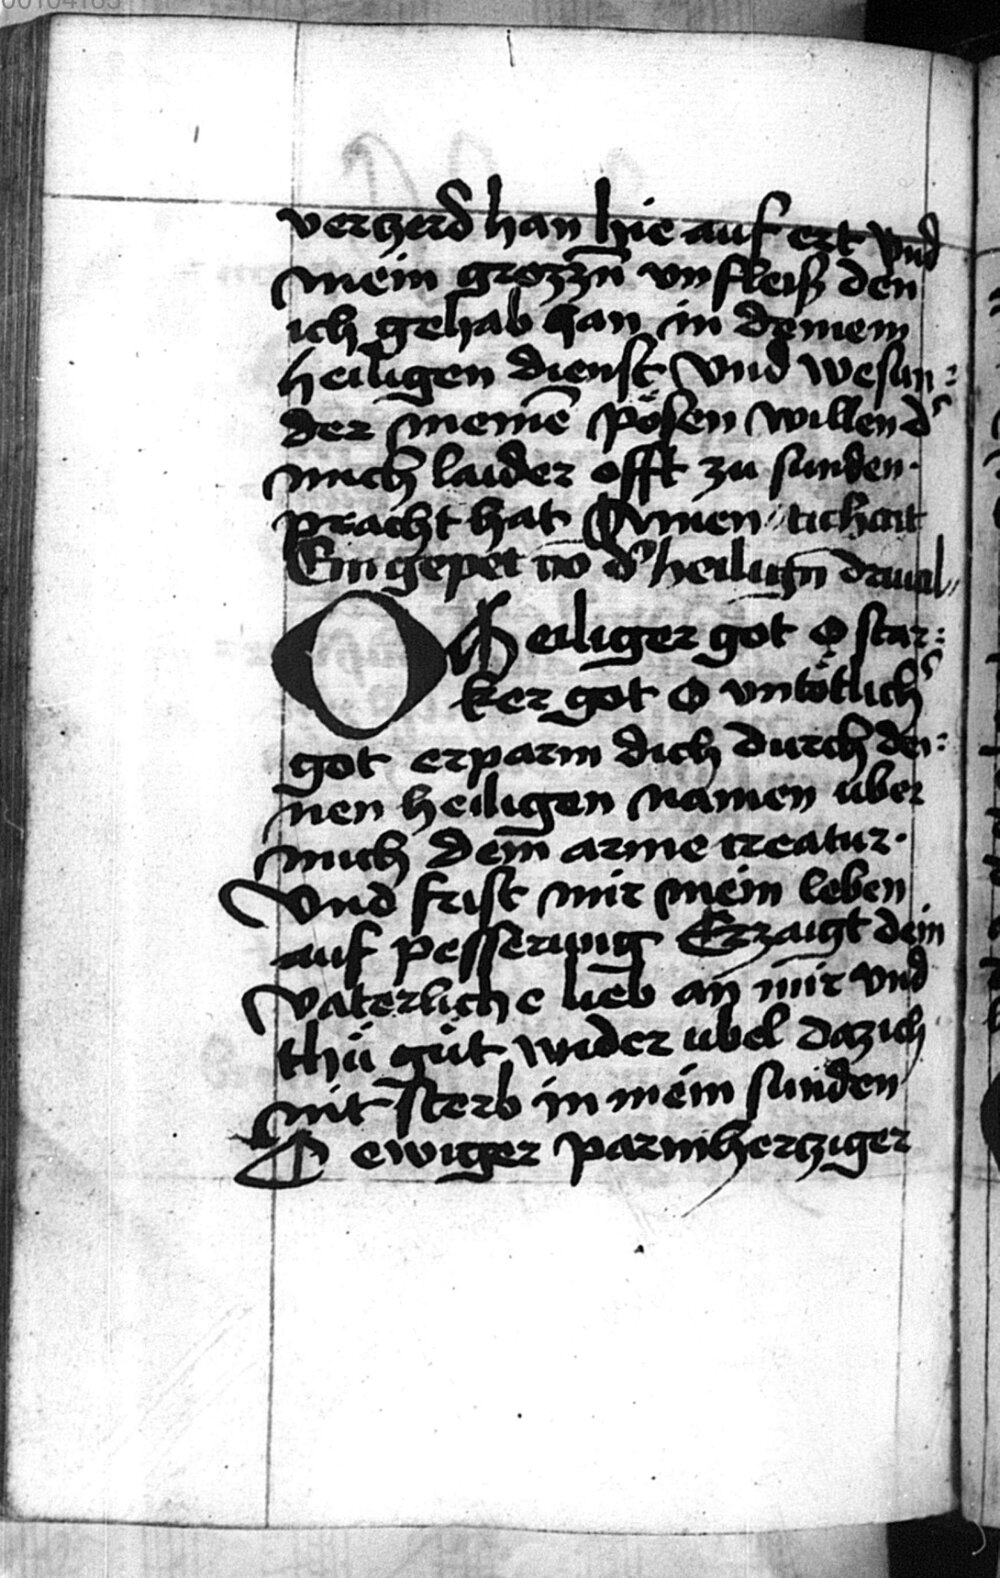 00104163
verczerd han hie auf ert vnd
mein grozzn̄ vnfleiß den
ich gehab han in deinem
heiligen dienst Vnd wesun:
der meinē pösen willen d᾽
mich laider offt zu sunden·
pracht hat Amen tichait
Ein gepet vō d᾽ heilign̄ driual
O Heiliger got O star:
ker got O vntötlich᾽
got erparm dich durch dei:
nen heiligen namen uber
mich dein arme creatur·
Vnd frist mir mein leben
auf pesserung Erzaigt dein
Vaterliche lieb an mir vnd
thů gůt wider ubel daz ich
nit sterb in mein sunden
O ewiger parmhercziger